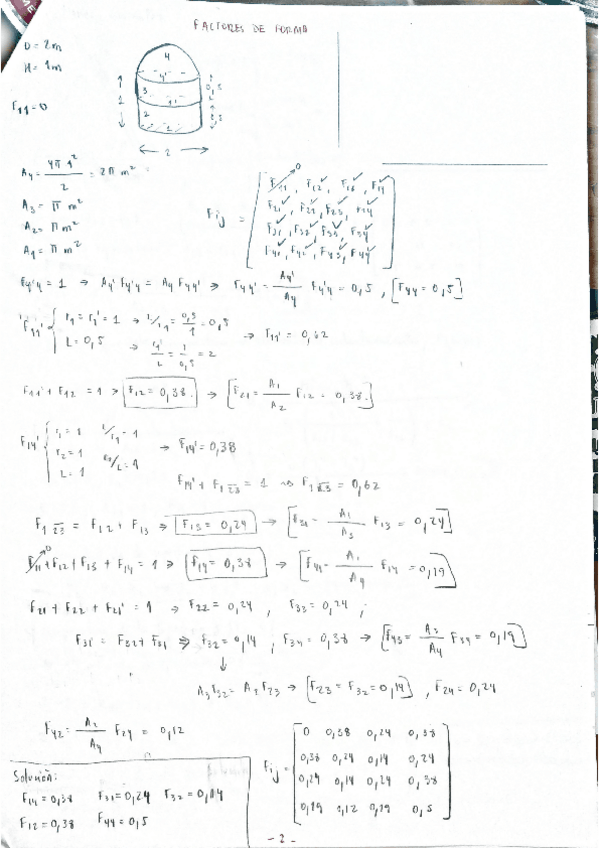 FACTORES DE FORMA
D = 2m
H = 1m
F11 = 0
4
4'
3
1'
2
1
0,5
0,5
2
A4 = 4π 1² / 2 = 2π m²
A3 = π m²
A2 = π m²
A1 = π m²
Fij = [ F11, F12, F13, F14
F21, F22, F23, F24
F31, F32, F33, F34
F41, F42, F43, F44 ]
F4'4 = 1 → A4' F4'4 = A4 F44' ⇒ F44' = A4'/A4 F4'4 = 0,5 , [F44 = 0,5]
F11' { r1 = r1' = 1 → L/r1 = 0,5/1 = 0,5
L = 0,5 → r1'/L = 1/0,5 = 2 → F11' = 0,62
F11' + F12 = 1 → F12 = 0,38 → [F21 = A1/A2 F12 = 0,38.]
F14' { r1 = 1 L/r1 = 1
r2 = 1 r2/L = 1
L = 1 → F14' = 0,38
F14' + F1 23 = 1 → F1 23 = 0,62
F1 23 = F12 + F13 → F13 = 0,24 → [F31 = A1/A3 F13 = 0,24]
F11 + F12 + F13 + F14 = 1 ⇒ F14 = 0,38 → [F41 = A1/A4 F14 = 0,19]
F21 + F22 + F21' = 1 → F22 = 0,24 , F33 = 0,24 ;
F32 = 0,14 ; F34 = 0,38 → [F43 = A3/A4 F34 = 0,19]
A3 F32 = A2 F23 → [F23 = F32 = 0,14] , F24 = 0,24
F42 = A2/A4 F24 = 0,12
Fij = [ 0 0,38 0,24 0,38
0,38 0,24 0,14 0,24
0,24 0,14 0,24 0,38
0,19 0,12 0,19 0,5 ]
Solución:
F14 = 0,38 F31 = 0,24 F32 = 0,14
F12 = 0,38 F44 = 0,5
- 2 -